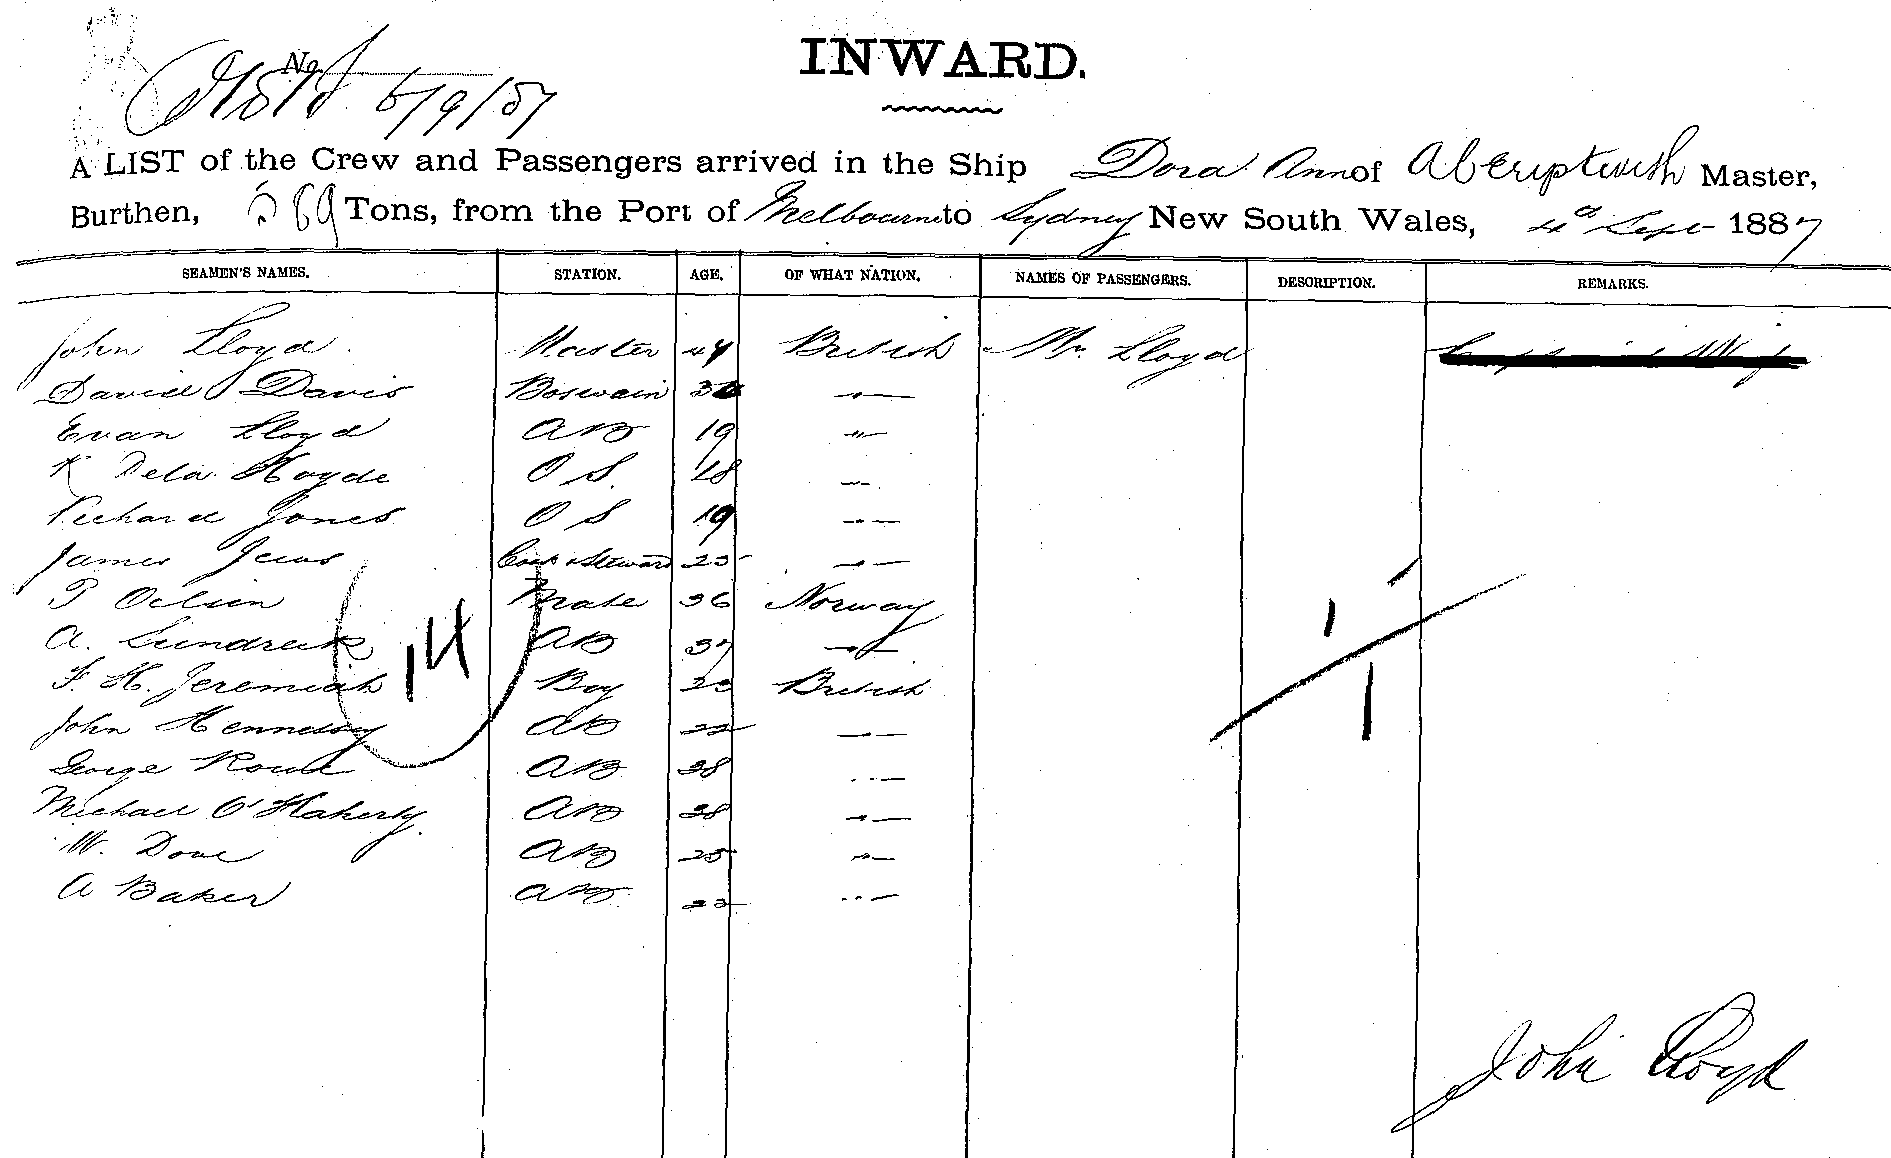 INWARD.
No. 5/9/87
A LIST of the Crew and Passengers arrived in the Ship Dora Ann of Aberiptwith Master,
Burthen, Tons, from the Port of Melbourne to Sydney New South Wales, 4th Sept 1887
SEAMEN'S NAMES. STATION. AGE. OF WHAT NATION. NAMES OF PASSENGERS. DESCRIPTION. REMARKS.
John Lloyd. Master 44 British Mr. Lloyd
David Davis Boswain —"—
Evan Lloyd AB 19 —"—
K Dela Hoyde O S. 18 —"—
Richard Jones O S 19 —"—
James Cook & Steward 25 —"—
P Mate 36 Norway
A. AB 37 —"—
F. H. Jeremiah Boy 23 British
John Hennessy AB 22 —"—
George Rowe AB 28 —"—
Michael O'Flaherty. AB 28 —"—
W. Dove AB 25 —"—
A Baker AB 22 —"—
14
John Lloyd